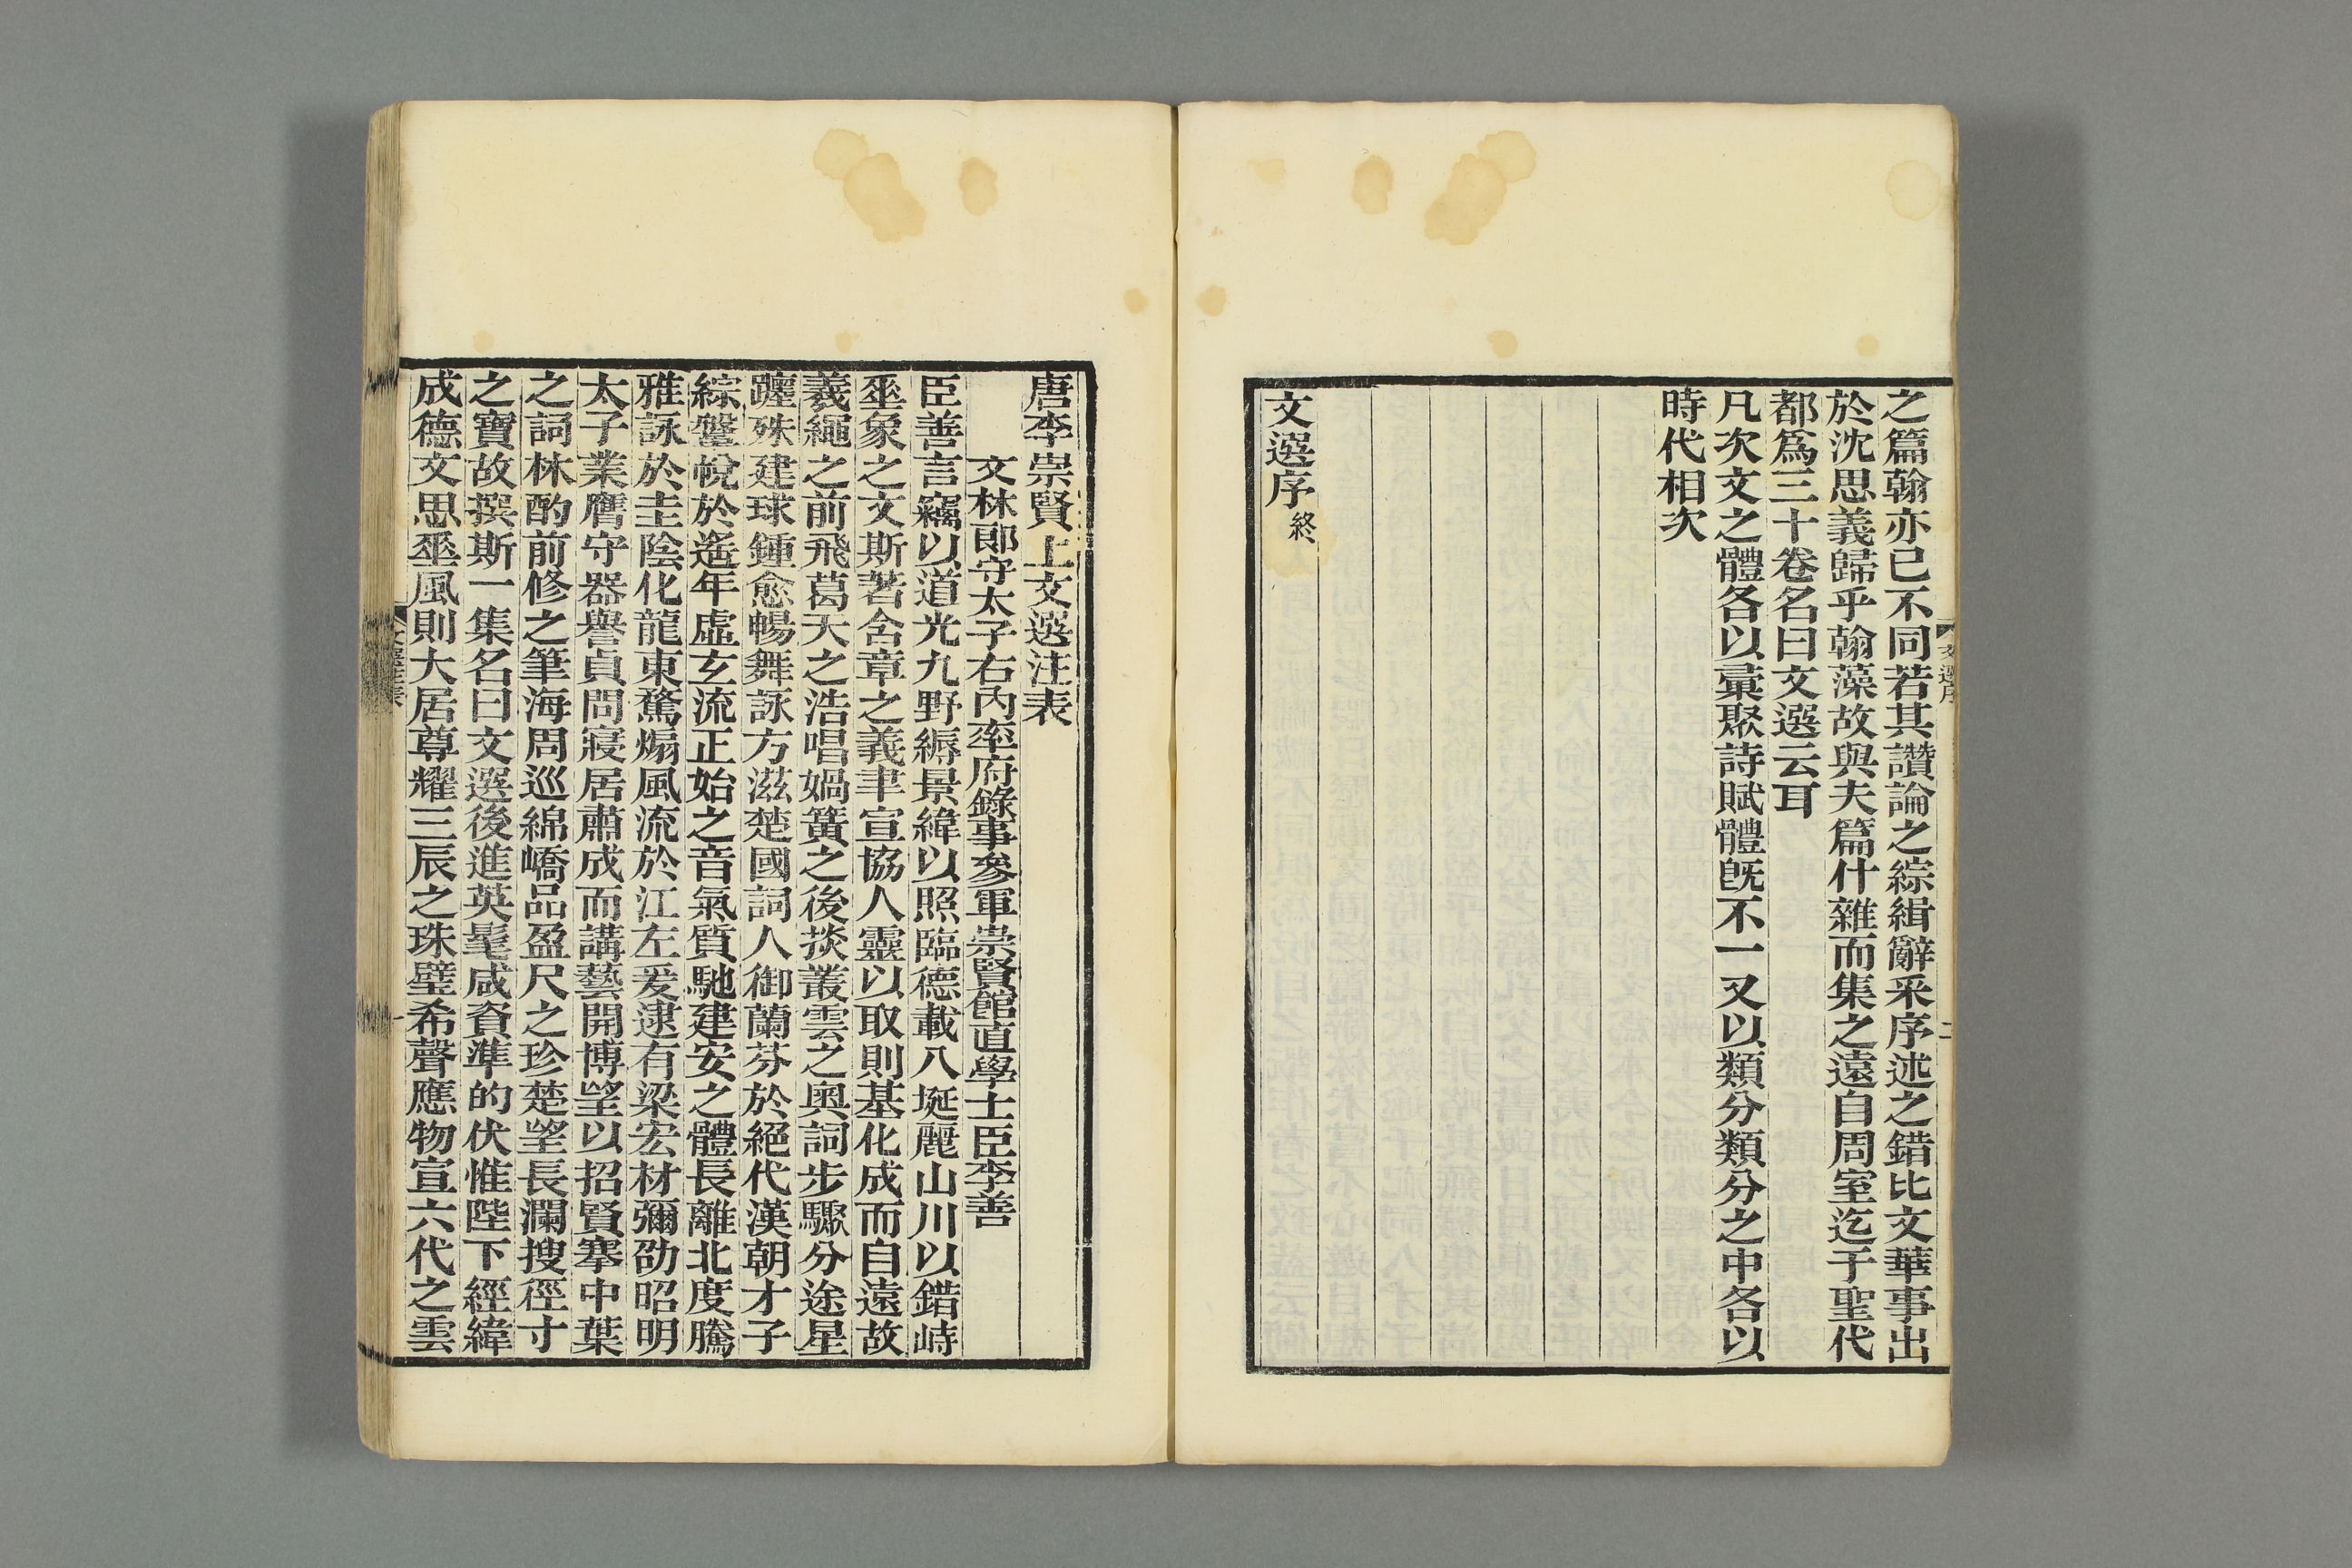 之篇翰亦已不同若其讚論之綜緝辭采序述之錯比文華事出
於沈思義歸乎翰藻故與夫篇什雜而集之遠自周室迄于聖代
都爲三十卷名曰文選云耳
凡次文之體各以彙聚詩賦體旣不一又以類分類分之中各以
時代相次
文選序終
文選序
二
唐李崇賢上文選注表
文林郎守太子右內率府錄事參軍崇賢館直學士臣李善
臣善言竊以道光九野縟景緯以照臨德載八埏麗山川以錯峙
埀象之文斯著含章之義聿宣協人靈以取則基化成而自遠故
羲繩之前飛葛天之浩唱媧簧之後掞叢雲之奧詞步驟分途星
躔殊建球鍾愈暢舞詠方滋楚國詞人御蘭芬於絕代漢朝才子
綜鞶帨於遙年虛玄流正始之音氣質馳建安之體長離北度騰
雅詠於圭陰化龍東騖煽風流於江左爰逮有梁宏材彌劭昭明
太子業膺守器譽貞問寢居肅成而講藝開博望以招賢搴中葉
之詞林酌前修之筆海周巡綿嶠品盈尺之珍楚望長瀾搜徑寸
之寶故撰斯一集名曰文選後進英髦咸資準的伏惟陛下經緯
成德文思埀風則大居尊耀三辰之珠璧希聲應物宣六代之雲